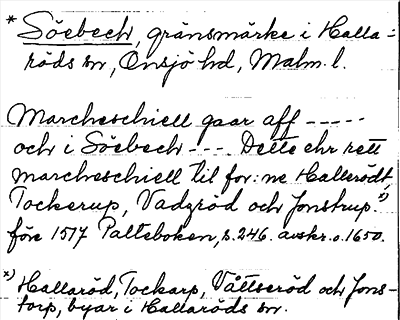 * Söebech, gränsmärke i Halla-
röds sn, Onsjö hd, Malm. l.
Marcheschiell gaar aff -----
och i Söebech --- Dette ehr rett
marcheschiell til for:ne Hallerödt,
Tockerup, Vadzröd och Jonstrup. x)
före 1517 Palteboken, s. 246. avskr. o. 1650.
x) Hallaröd, Tockarp, Våttseröd och Jons-
torp, byar i Hallaröds sn.